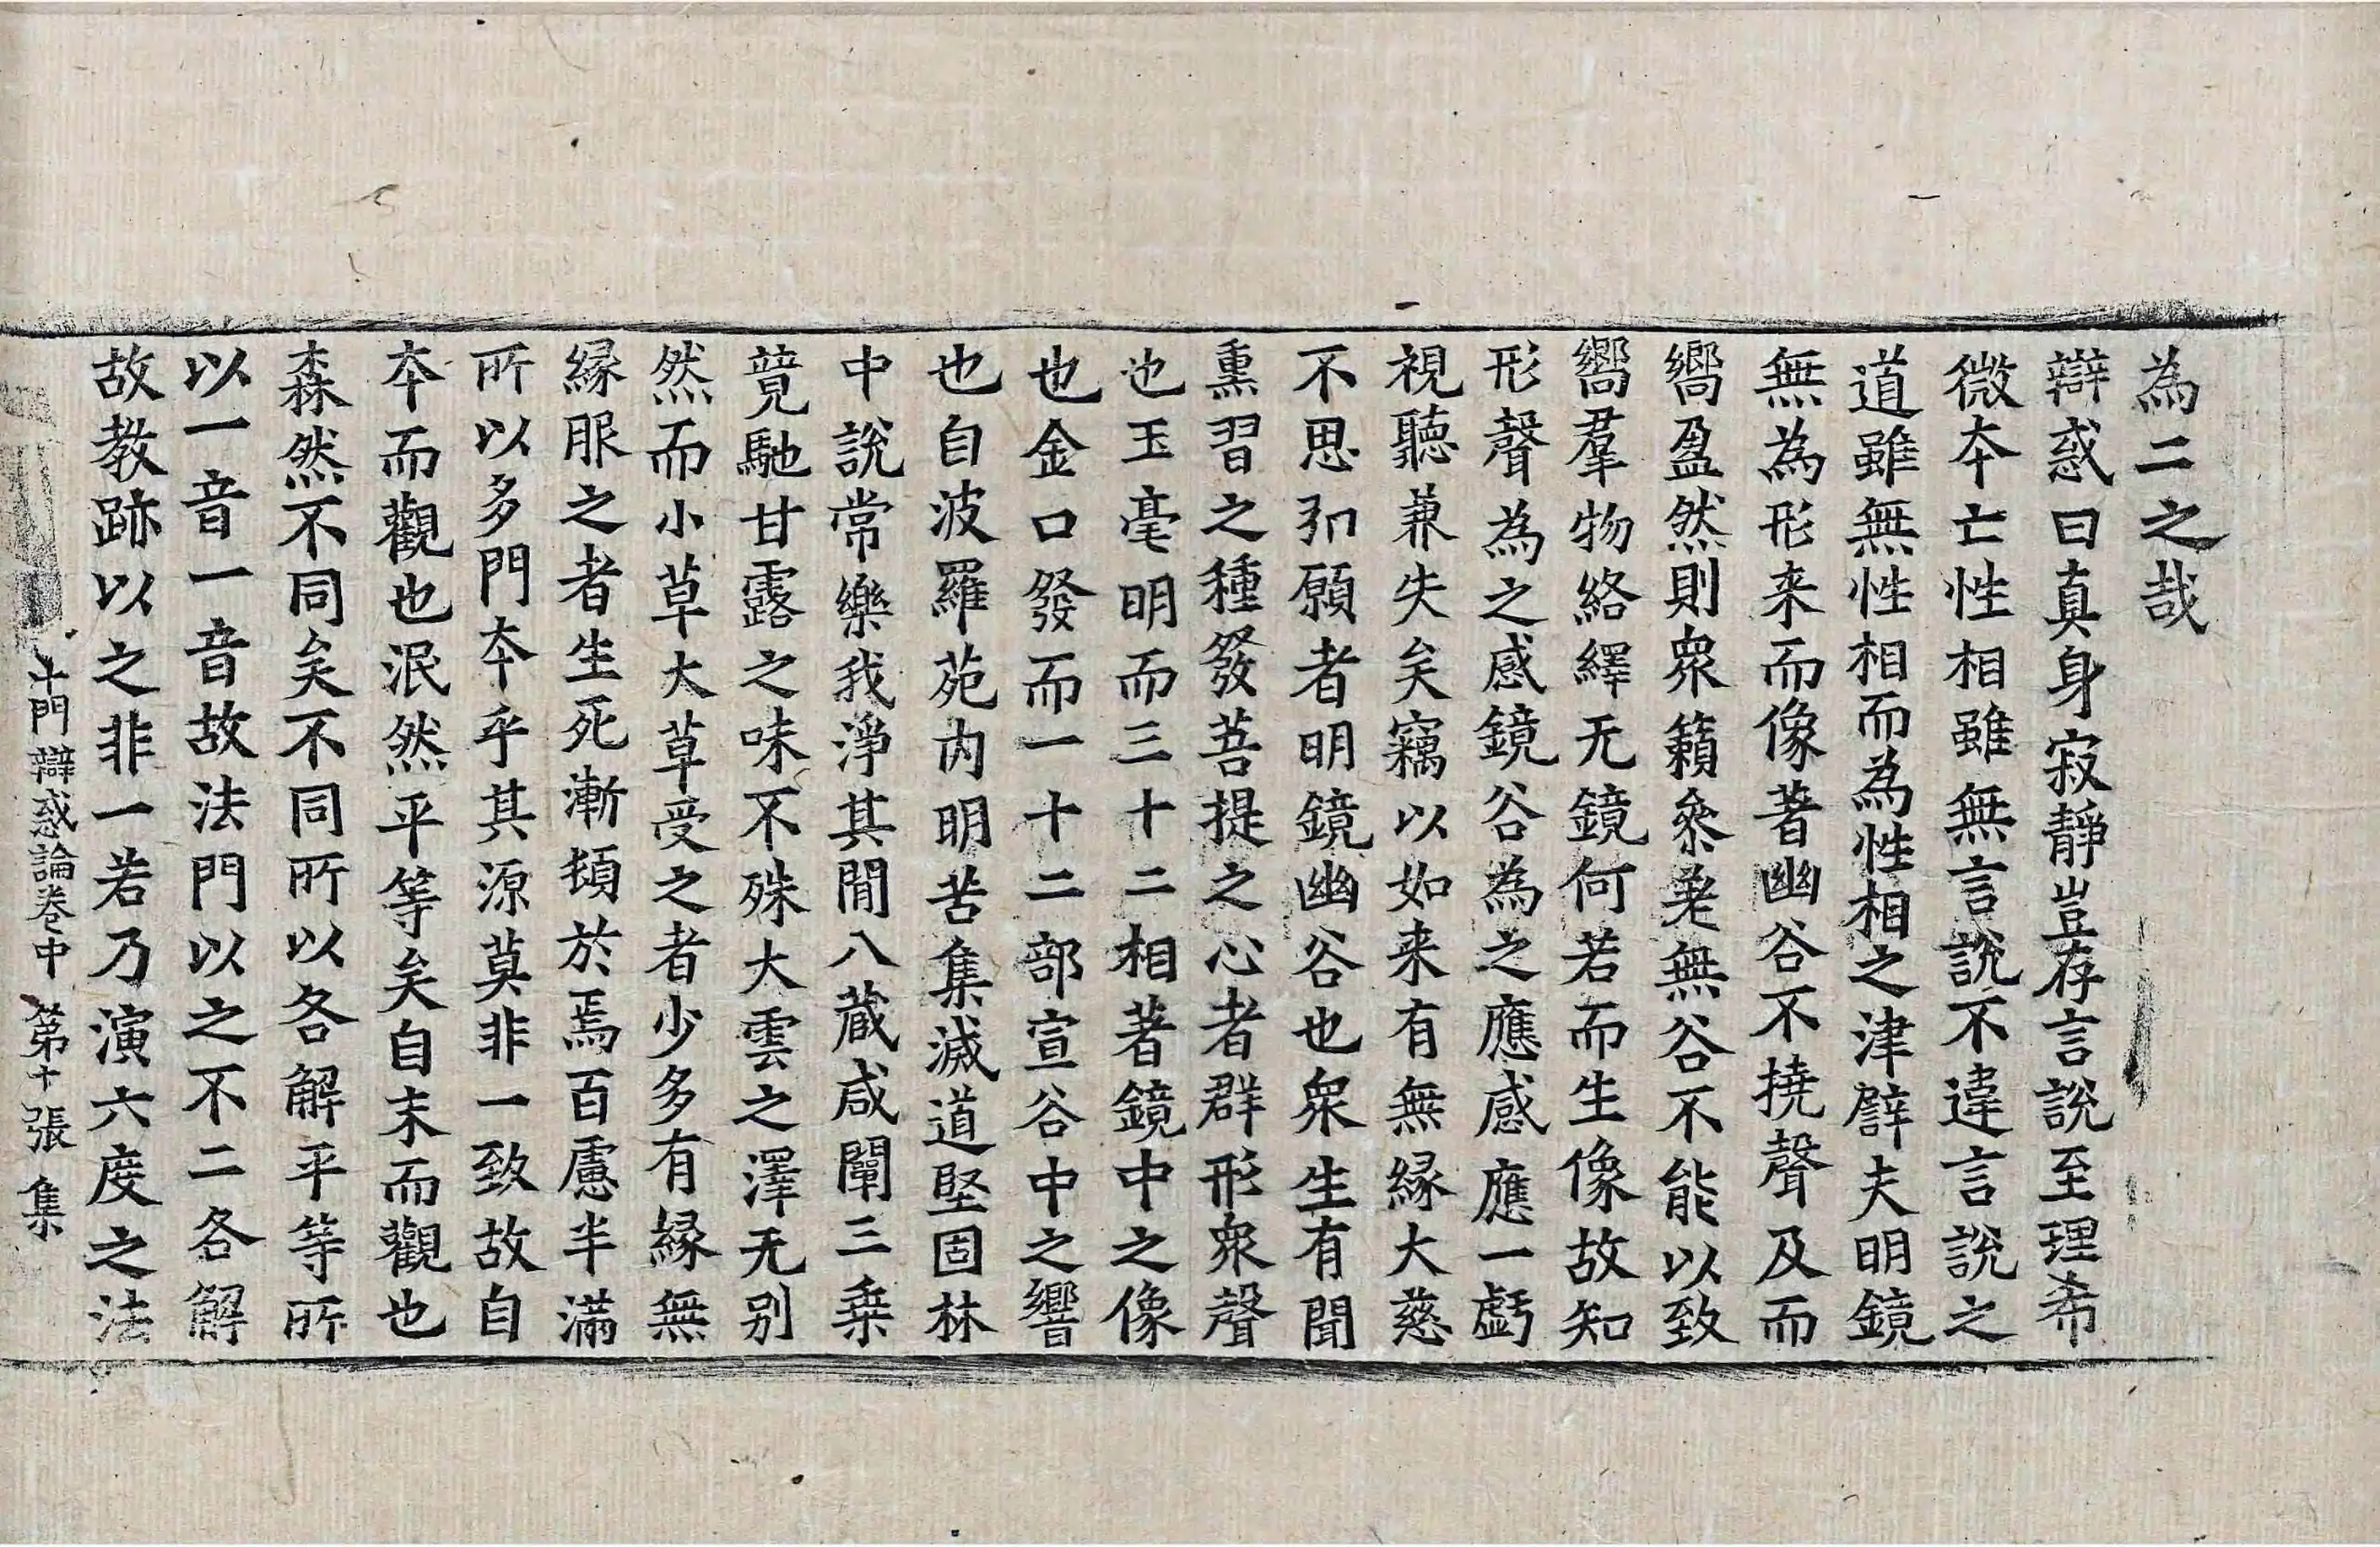 為二之哉
辯惑曰真身寂靜豈存言說至理希
微本亡性相雖無言說不違言說之
道雖無性相而為性相之津譬夫明鏡
無為形来而像著幽谷不撓聲及而
嚮盈然則衆籟叅差無谷不能以致
嚮羣物絡繹无鏡何若而生像故知
形聲為之感鏡谷為之應感應一虧
視聽兼失矣竊以如来有無緣大慈
不思弘願者明鏡幽谷也衆生有聞
熏習之種發菩提之心者群形衆聲
也玉毫明而三十二相著鏡中之像
也金口發而一十二部宣谷中之響
也自波羅苑内明苦集滅道堅固林
中說常樂我淨其間八蔵咸闡三乗
竟馳甘露之味不殊大雲之澤无别
然而小草大草受之者少多有緣無
緣服之者生死漸頓於焉百慮半滿
所以多門本乎其源莫非一致故自
本而觀也泯然平等矣自末而觀也
森然不同矣不同所以各解平等所
以一音一音故法門以之不二各解
故教跡以之非一若乃演六度之法
十門辯惑論卷中 第十張 集